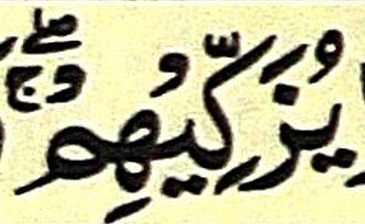 يُزَكِّيْهِمْ ۖۚ